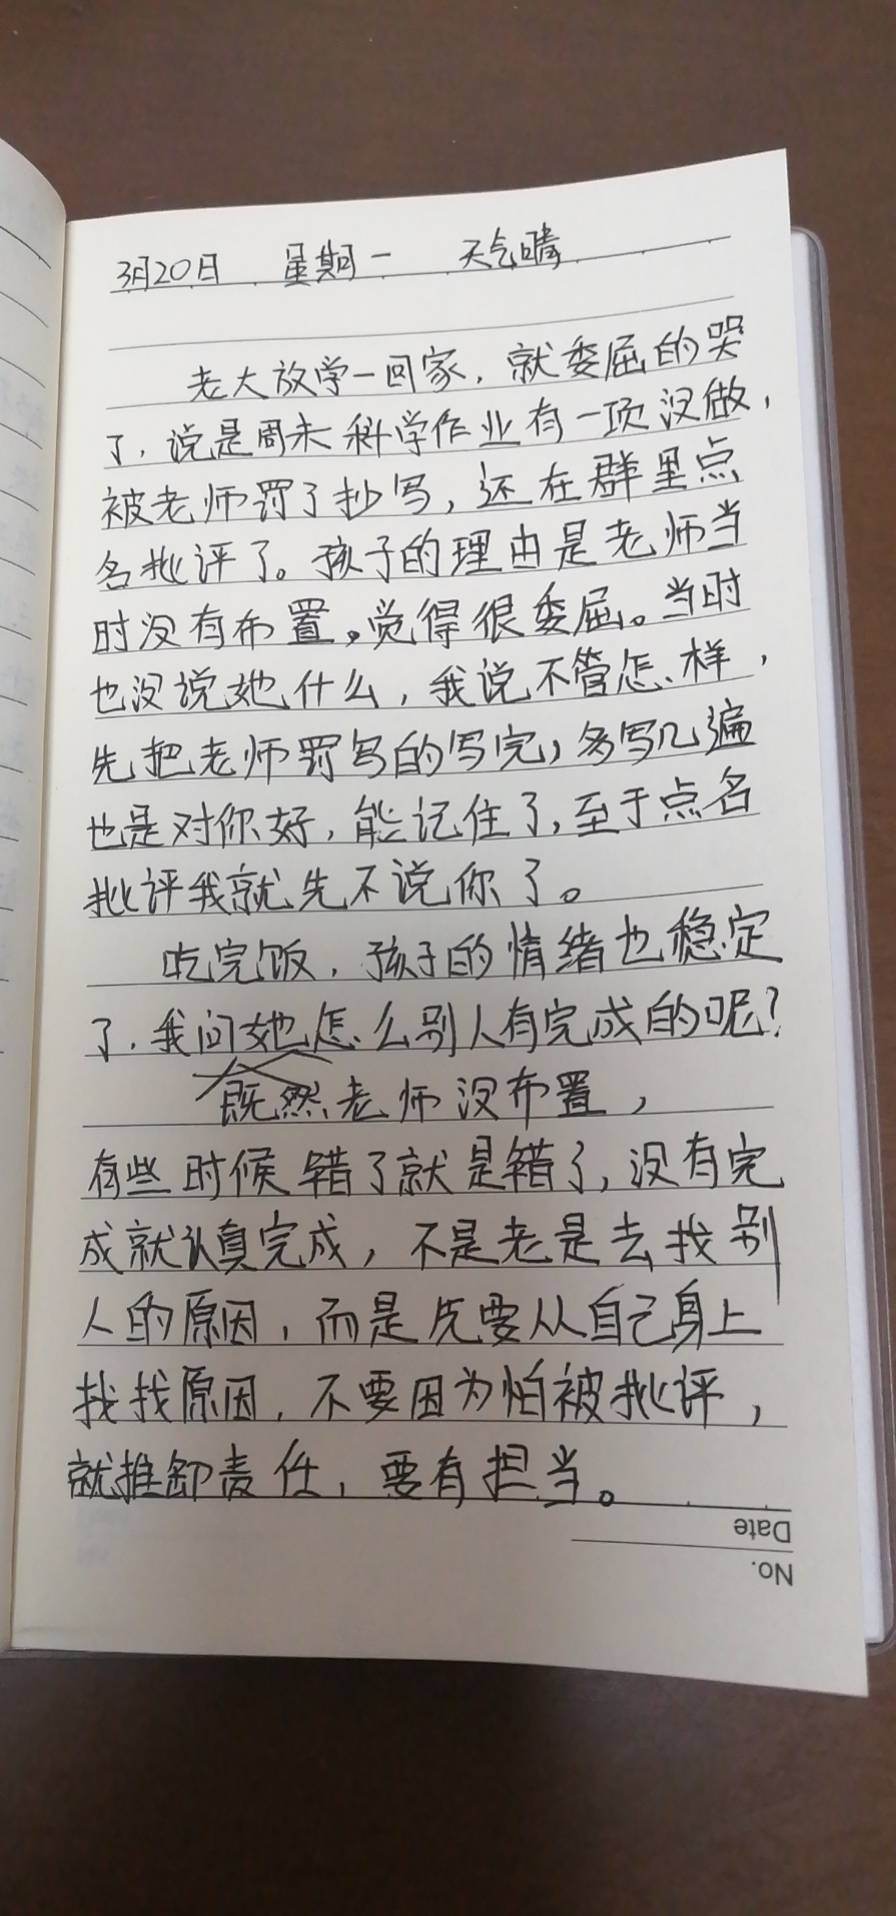 3月20日 星期一 天气晴
老大放学一回家，就委屈的哭
了，说是周末科学作业有一项没做，
被老师罚了抄写，还在群里点
名批评了。孩子的理由是老师当
时没有布置。觉得很委屈。当时
也没说她什么，我说不管怎样，
先把老师罚写的写完，多写几遍
也是对你好，能记住了，至于点名
批评我就先不说你了。
吃完饭，孩子的情绪也稳定
了，我问她怎么别人有完成的呢？
既然老师没布置，
有些时候错了就是错了，没有完
成就认真完成，不是老是去找别
人的原因，而是先要从自己身上
找找原因，不要因为怕被批评，
就推卸责任，要有担当。
Date
No.